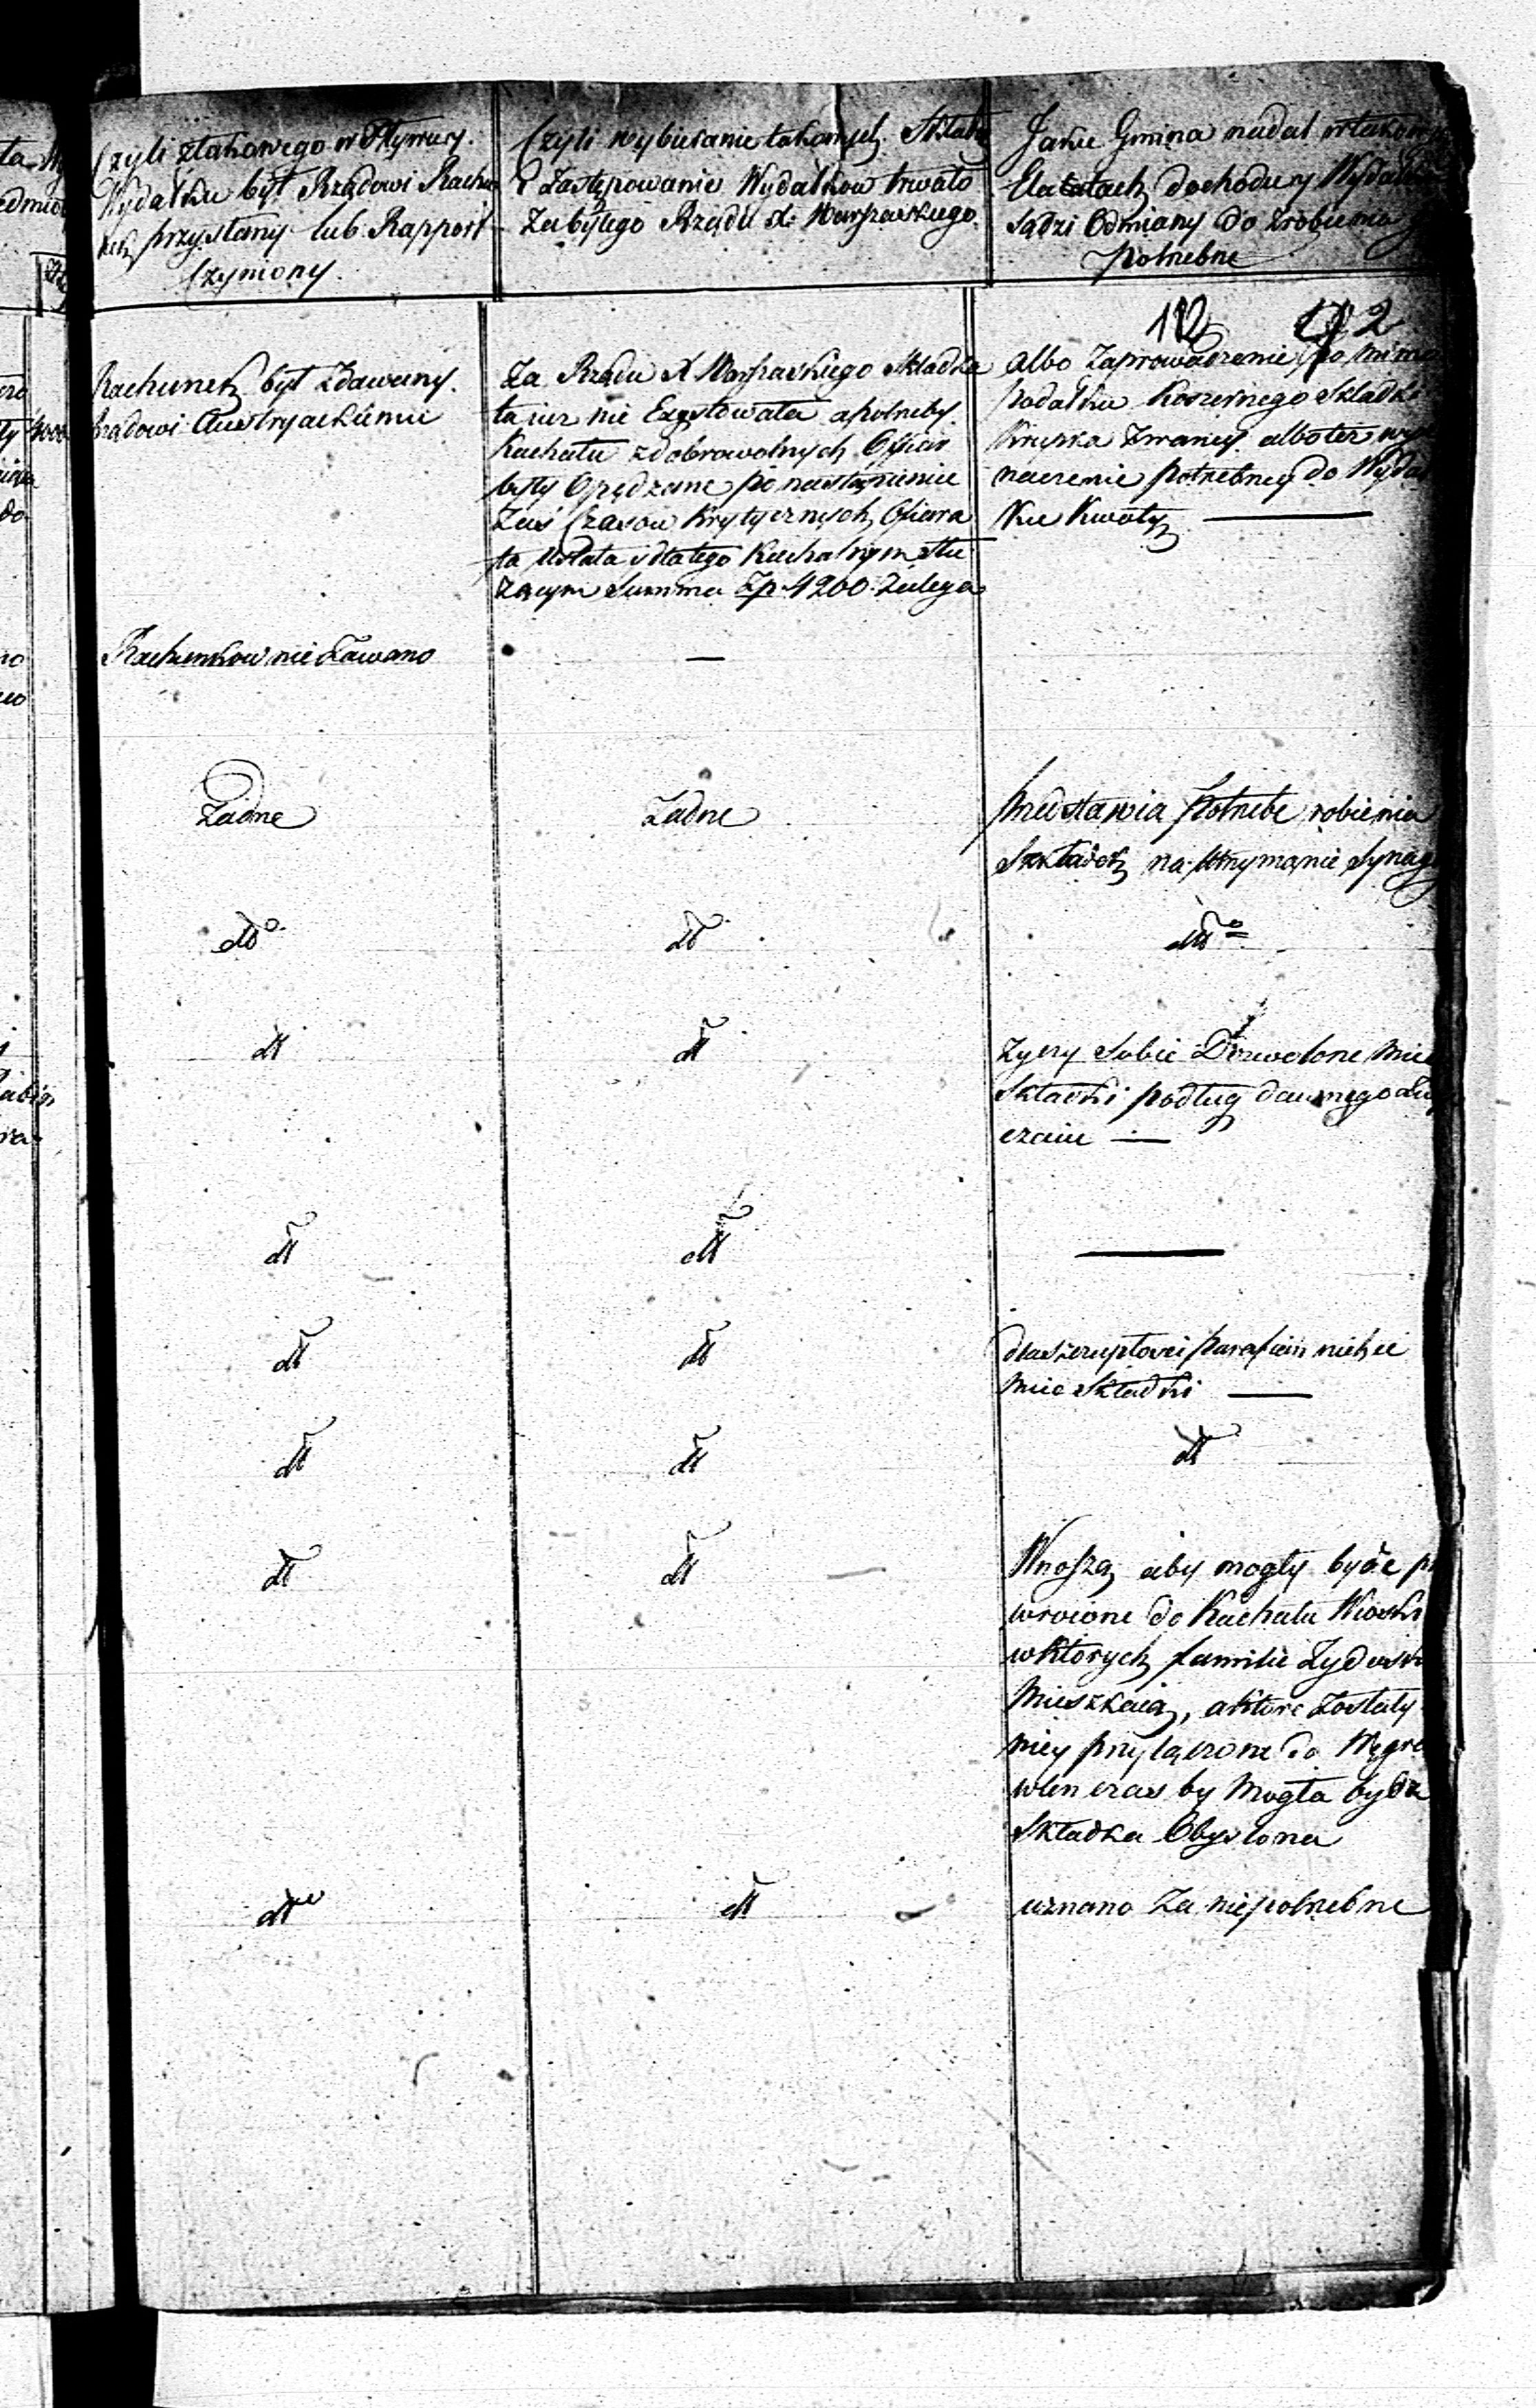 Czyli z takowego w Płymuey.
Wydatku był Rządowi Rachu
nek przysłany lub Rapport
Czymiony.
Czyli wybieranie takowych Składe
i Zastępowanie Wydatkow trwało
Za byłego Rządu X. Warszawskiego.
Jakie Gmina nadal w takow
Etatach dochodu y Wydatku
sądzi Odmiany do Zrobienia
Potrzebne
112 2
Rachunek był Zdawany.
Rządowi Austryackiemu
Za Rządu X Warszawskiego Składka
ta iuz nie Exystowała a potrzeby
Kachału z dobrowolnych Ofiar
były Opędzane po nastąpieniu
Zaś Czasow Krytycznych, Ofiara
ta Ustała i dlatego Kachalnym Słu
Zącym Summa Zp. 4200 Zalega
albo Zaprowadzenie po mimo
Podatku Koszernego Składki
Krupka Zwaney albo tez wy
naczenie potrzebney do Wyda
tku Kwoty
Rachunkow nie dawano
—
Zadne
Zadne
Przedstawia Potrzebe robienia
Składek na Utrzymanie Synag
dto
dto
dto
dt
dt
Zyczy Sobie Dozwolone mie
Składki podług dawnego Zwy
czaiu —
dt
dt
—
dt
dt
dla szczupłości parafein niechce
miec Składki —
dt
dt
dt
dt
dt
Wnoszą aby mogły bydź p
wrocone do Kachału Wioski
w ktorych familie Zydowsk
Mieszkaią, a ktore Zostały
niey przyłączone do Węgro
wten czas by Mogła bydz
Składka Obyslona
dto
dt
uznano Za niepotrzebne